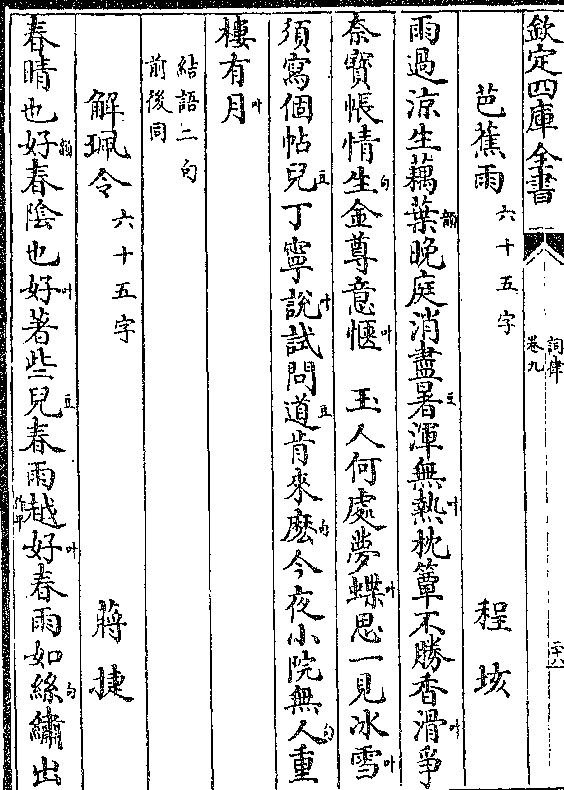 欽定四庫全書
詞律
卷九
二十八
芭蕉雨六十五字 程垓
雨過涼生藕葉韻晚庭消盡暑豆渾無熱叶枕簟不勝香滑叶爭
奈寶帳情生句金尊意愜叶 玉人何處夢蝶叶思一見冰雪叶
須寫個帖兒豆丁寧說叶試問道豆肯來麽句今夜小院無人句重
樓有月叶
結語二句
前後同
解珮令六十五字 蔣捷
春晴也好韻春陰也好叶著些兒豆春雨越作平好叶春雨如絲句繡出